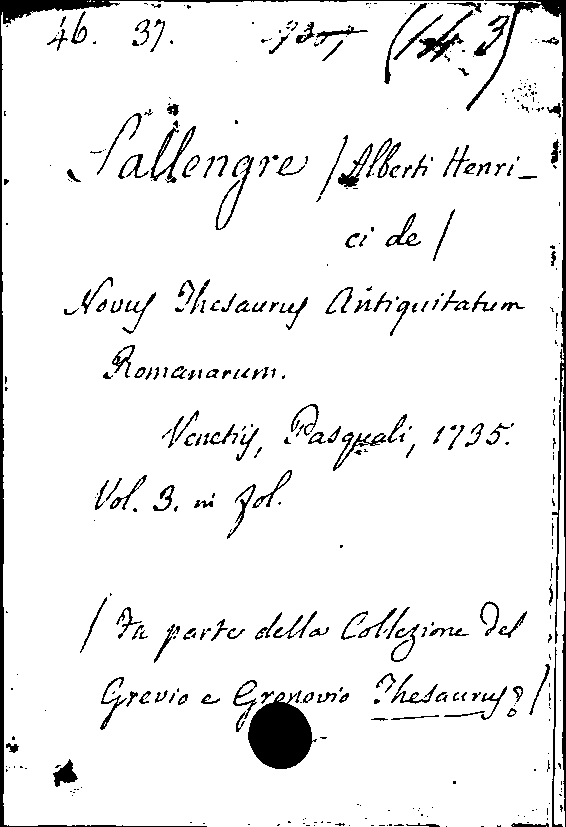 46. 37. (14. 3)
Sallengre / Alberti Henri-
ci de /
Novus Thesaurus Antiquitatum
Romanarum.
Venetijs, Pasquali, 1735.
Vol. 3. in fol.
/ Fa parte della Collezione del
Grevio e Gronovio Thesaurus &/